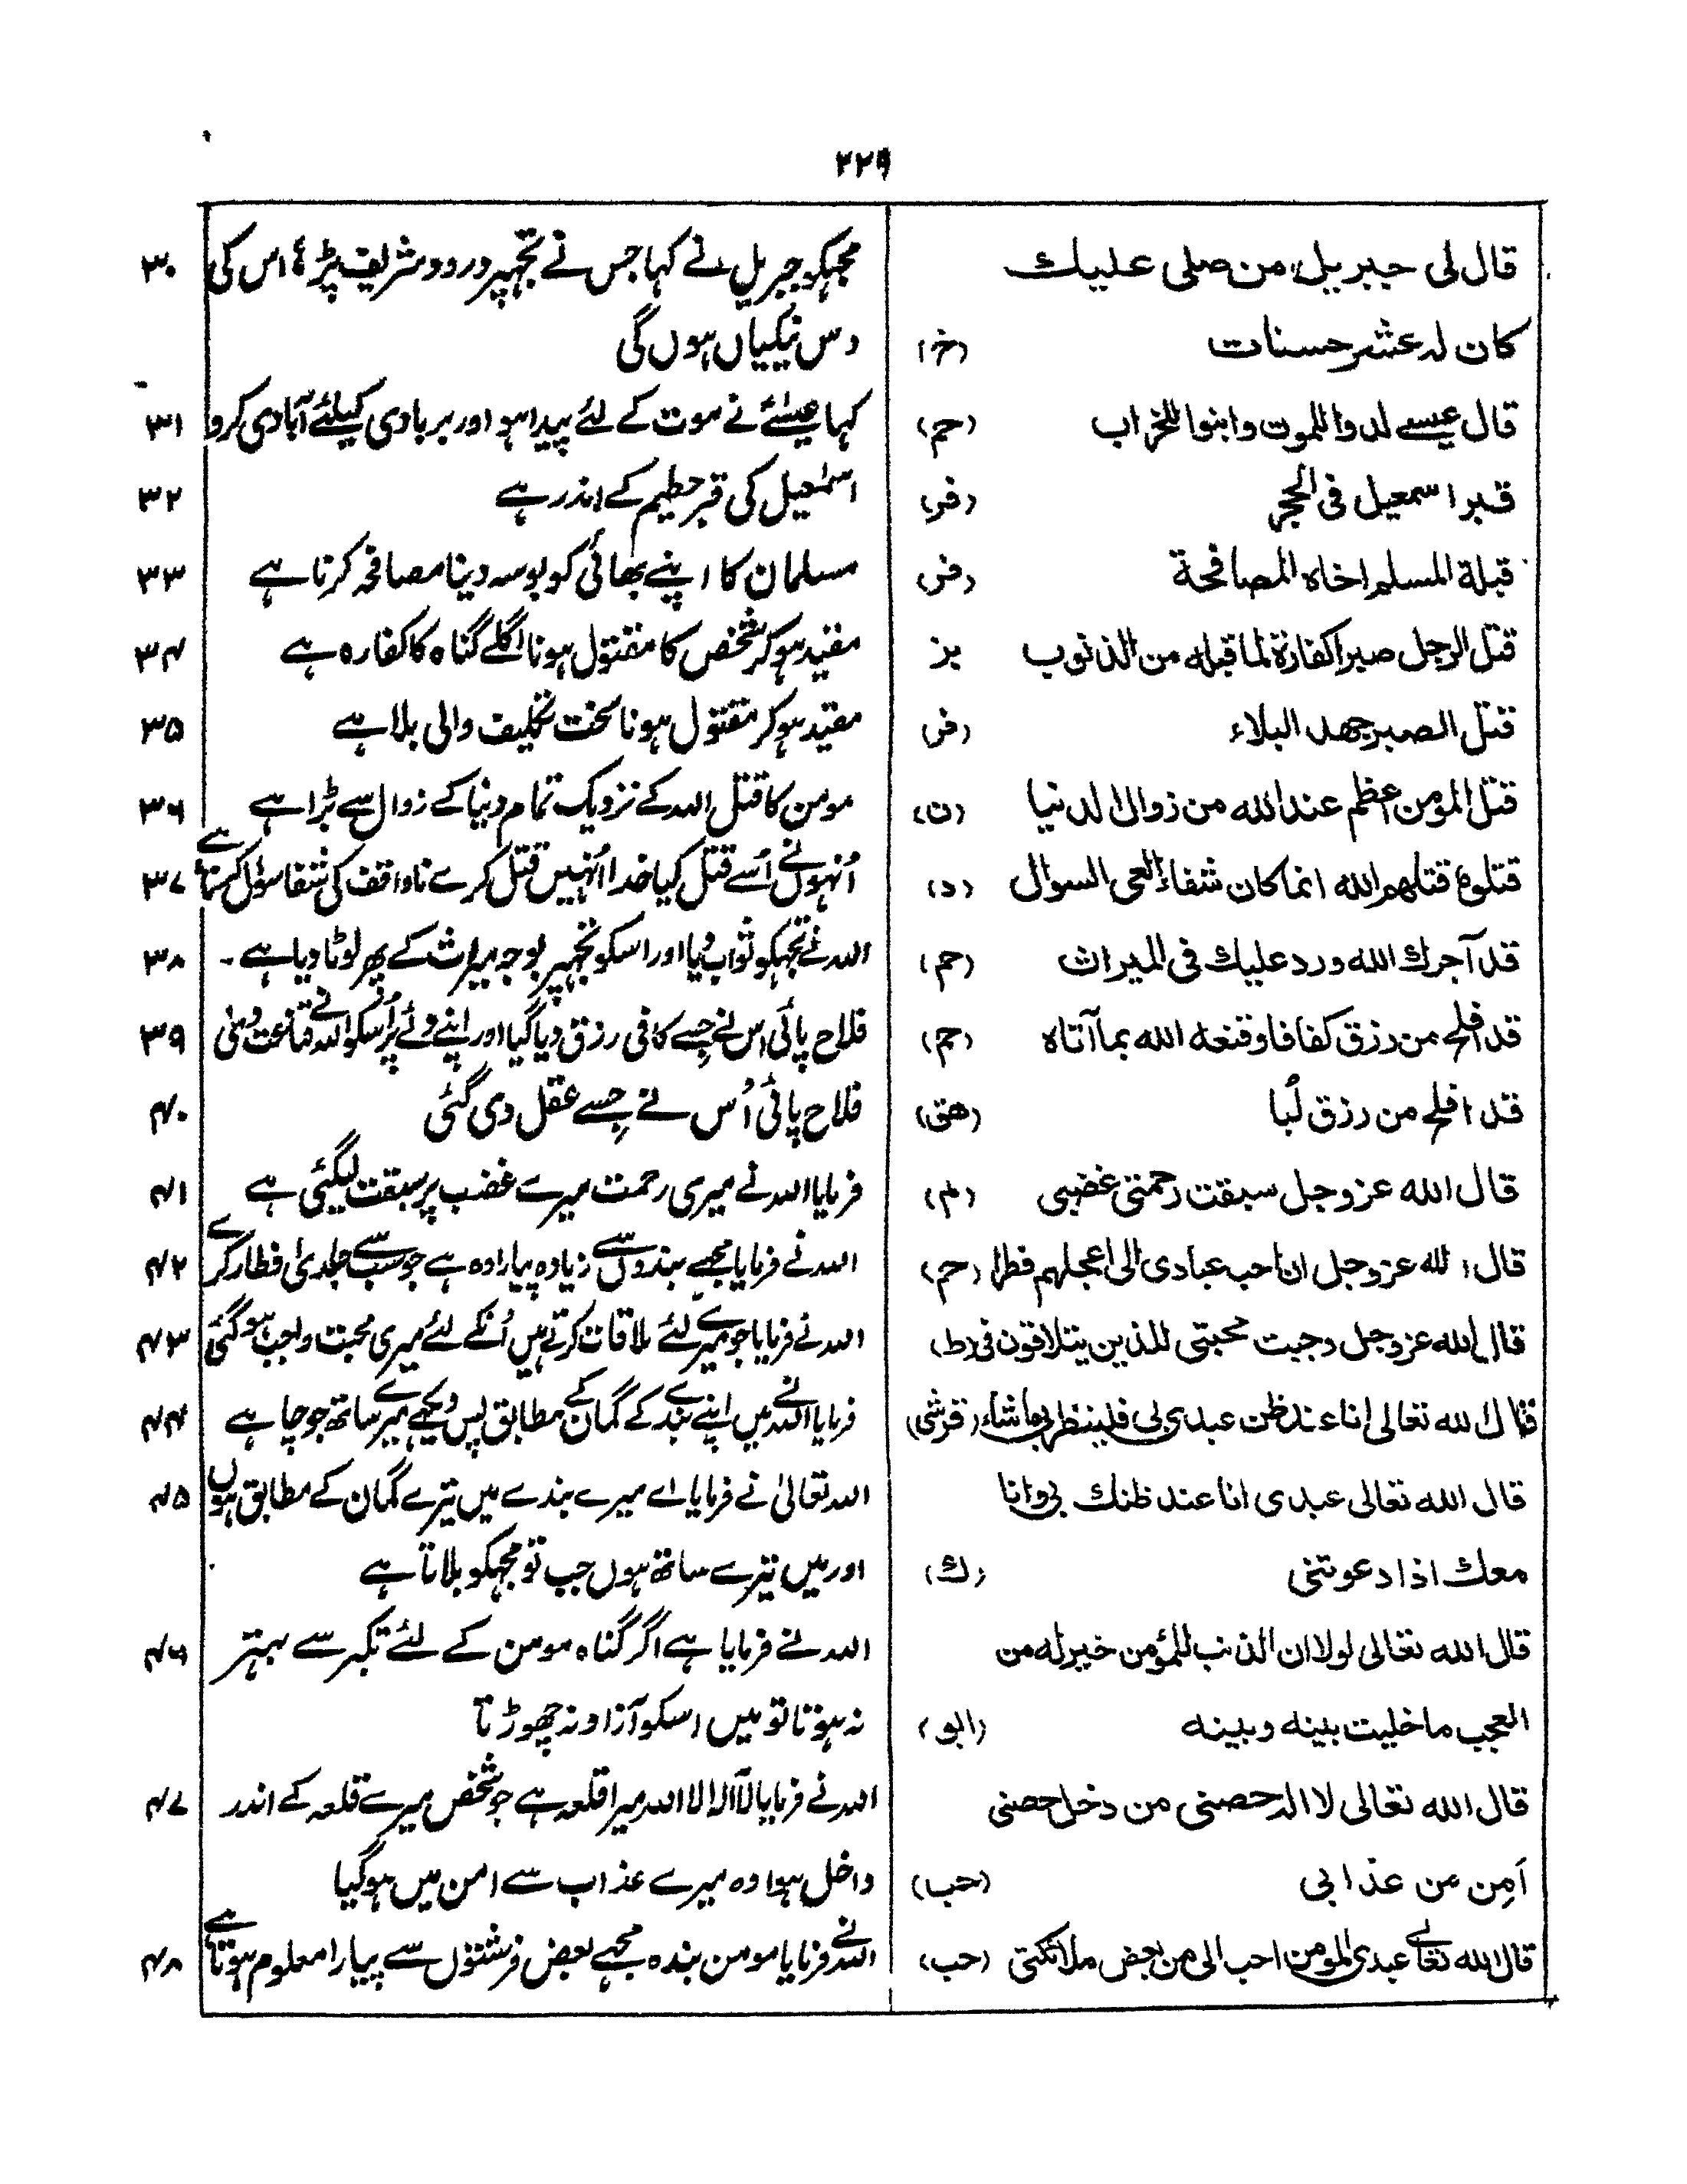 ۲۲۹
قال لی جبریل من صلی علیک مجہکو جبریل نے کہا جس نے تجہپر درود شریف پڑہا اس کی ۳۰
کان لہ عشر حسنات (خ) دس نیکیاں ہوں گی
قال عیسے لدوا للموت وابنوا للخراب (حم) کہا عیسٰے نے موت کے لئے پیدا ہو اور بربادی کیلئے آبادی کرو ۳۱
قبر اسمعیل فی الحجر (فر) اسمٰعیل کی قبر حطیم کے اندر ہے ۳۲
قبلة المسلم اخاہ المصافحة (فر) مسلمان کا اپنے بھائی کو بوسہ دینا مصافحہ کرنا ہے ۳۳
قتل الرجل صبرا کفارة لما قبلہ من الذنوب بز مقید ہو کر شخص کا مقتول ہونا اگلے گناہ کا کفارہ ہے ۳۴
قتل الصبر جھد البلاء (فر) مقید ہو کر مقتول ہونا سخت تکلیف والی بلا ہے ۳۵
قتل المؤمن اعظم عند اللہ من زوال الدنیا (ن) مومن کا قتل اللہ کے نزدیک تمام دنیا کے زوال سے بڑا ہے ۳۶
قتلوہ قتلھم اللہ انما کان شفاء العی السوال (د) اُنہوں نے اُسے قتل کیا خدا اُنہیں قتل کرے ناواقف کی شفا سوال کرنا ہے ۳۷
قد آجرك اللہ ورد علیك فی المیراث (حم) اللہ نے تجہکو ثواب دیا اور اسکو تجہپر بوجہ میراث کے پھر لوٹا دیا ہے ۔ ۳۸
قد افلح من رزق کفافا وقنعہ اللہ بما آتاہ (حم) فلاح پائی اس نے جسے کافی رزق دیا گیا اور اپنے دئے پر اُسکو اللہ نے قناعت دی ۳۹
قد افلح من رزق لُبا (ھق) فلاح پائی اُس نے جسے عقل دی گئی ۴۰
قال اللہ عزوجل سبقت رحمتی غضبی (م) فرمایا اللہ نے میری رحمت میرے غضب پر سبقت لیگئی ہے ۴۱
قال اللہ عزوجل ان احب عبادی الی اعجلھم فطرا (حم) اللہ نے فرمایا مجہے بندوں سے زیادہ پیارا وہ ہے جو سب سے جلدی افطار کرے ۴۲
قال اللہ عزوجل وجبت محبتی للذین یتلاقون فی (ط) اللہ نے فرمایا جو میرے لئے ملاقات کرتے ہیں اُنکے لئے میری محبت واجب ہو گئی ۴۳
قال اللہ تعالی انا عند ظن عبدی بی فلینظر بی ما شاء (قرشی) فرمایا اللہ نے میں اپنے بندے کے گمان کے مطابق پس دیکھے میرے ساتھ جو چاہے ۴۴
قال اللہ تعالی عبدی انا عند ظنك بی وانا اللہ تعالیٰ نے فرمایا اے میرے بندے میں تیرے گمان کے مطابق ہوں ۴۵
معك اذا دعوتنی (ك) اور میں تیرے ساتھ ہوں جب تو مجہکو بلاتا ہے
قال اللہ تعالی لولا ان الذنب للمؤمن خیر لہ من اللہ نے فرمایا ہے اگر گناہ مومن کے لئے تکبر سے بہتر ۴۶
العجب ما خلیت بینہ وبینہ (ابو) نہ ہوتا تو میں اسکو آزاد نہ چھوڑتا
قال اللہ تعالی لا الہ حصنی من دخل حصنی اللہ نے فرمایا لا الہ الا اللہ میرا قلعہ ہے جو شخص میرے قلعہ کے اندر ۴۷
اَمِن من عذابی (حب) داخل ہوا وہ میرے عذاب سے امن میں ہو گیا
قال اللہ تعالے عبدی المومن احب الی من بعض ملائکتی (حب) اللہ نے فرمایا مومن بندہ مجہے بعض فرشتوں سے پیارا معلوم ہوتا ہے ۴۸